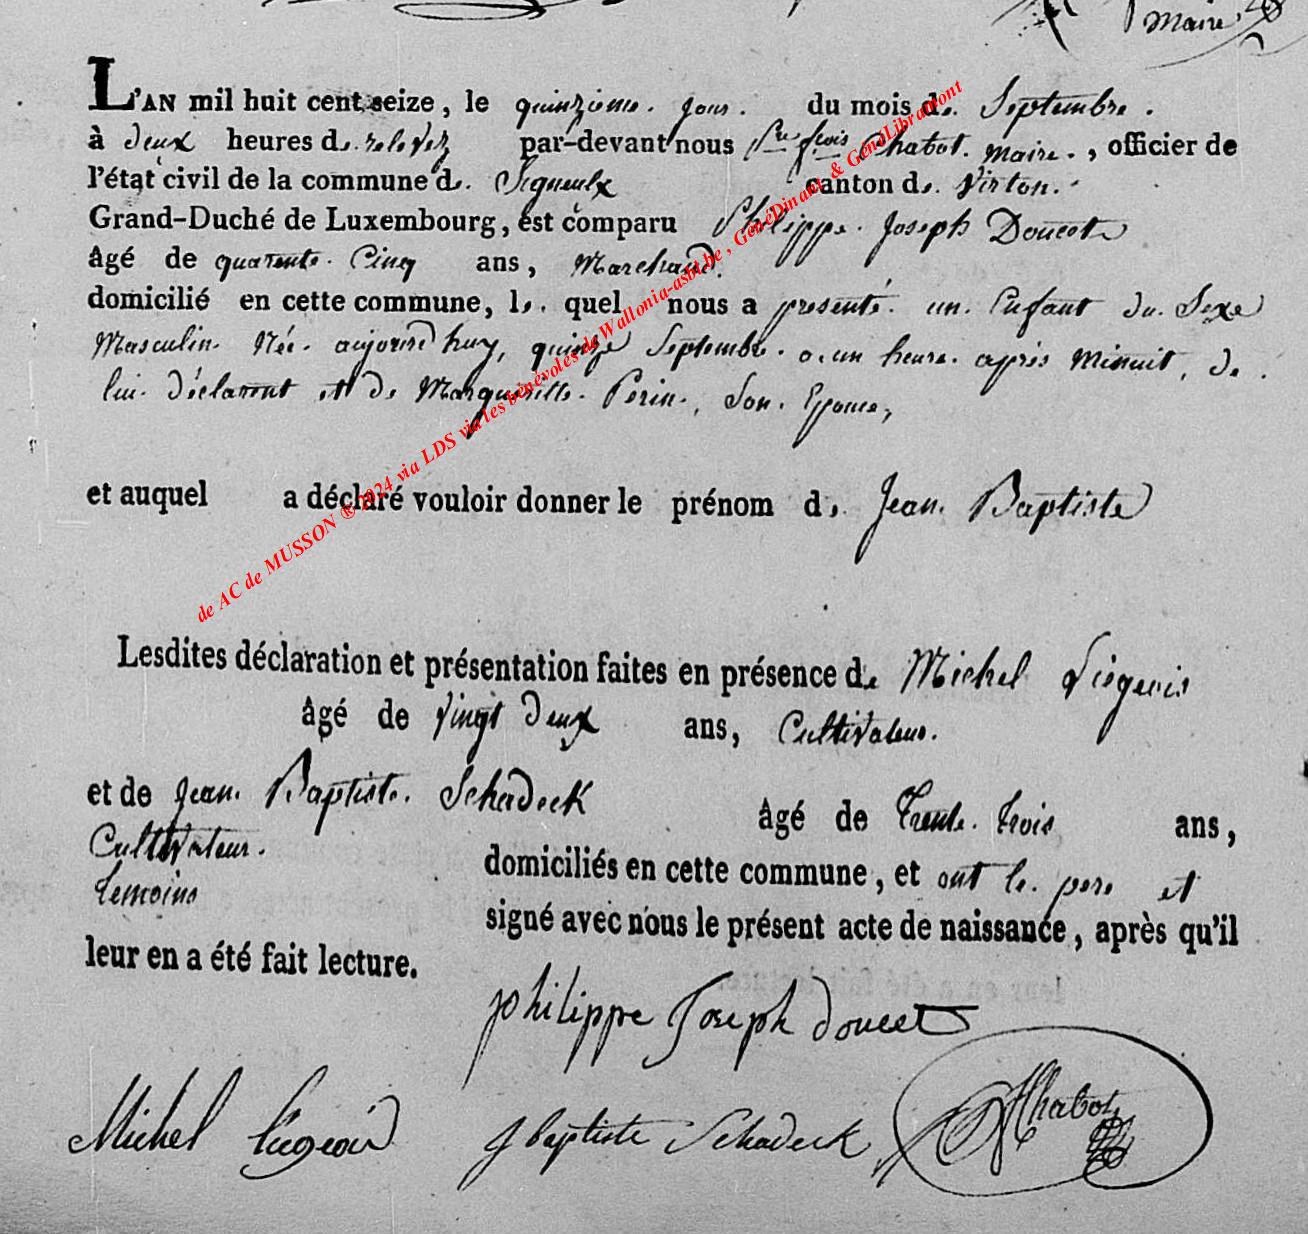 Maire
L'AN mil huit cent seize, le quinzieme jour du mois de Septembre.
à deux heures de relevez par-devant nous fcois Chabot. maire., officier de
l'état civil de la commune de Signeulx canton de Virton.
Grand-Duché de Luxembourg, est comparu Philippe Joseph Doucet
âgé de quarente Cinq ans, Marchand.
domicilié en cette commune, le quel nous a presenté un Enfant du Sexe
Masculin Née aujourd'huy, quinze Septembre a un heure après Minuit, de
lui déclarant et de Margueritte Perin, Son Epouse,
et auquel a déclaré vouloir donner le prénom de Jean Baptiste
de AC de MUSSON ® 2024 via LDS via les bénévoles de Wallonia-asbl.be, GénéDinant & GénéLibramont
Lesdites déclaration et présentation faites en présence de Michel
âgé de Vingt deux ans, Cultivateur.
et de Jean Baptiste Schadeck âgé de trente trois ans,
Cultivateur. domiciliés en cette commune, et ont le pere et
temoins signé avec nous le présent acte de naissance, après qu'il
leur en a été fait lecture.
philippe Joseph doucet
Michel J baptiste Schadeck Chabot